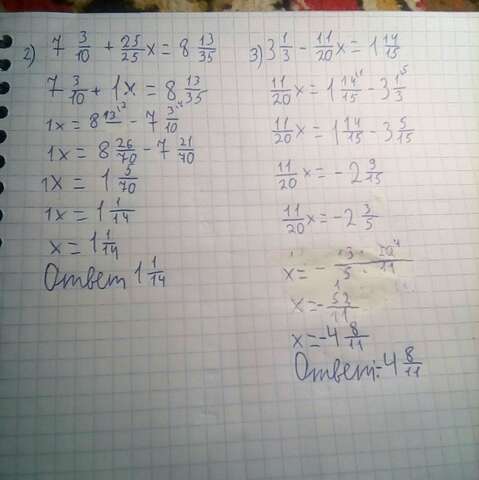 2) 7 3/10 + 25/25 x = 8 13/35
7 3/10 + 1x = 8 13/35
1x = 8 13\2 - 7 3\7/10
1x = 8 26/70 - 7 21/70
1x = 1 5/70
1x = 1 1/14
x = 1 1/14
Ответ 1 1/14
3) 3 1/3 - 11/20 x = 1 14/15
11/20 x = 1 14\1/15 - 3 1\5/3
11/20 x = 1 14/15 - 3 5/15
11/20 x = - 2 9/15
11/20 x = - 2 3/5
x = - 13 · 20\4 / 5 · 11
x = - 52/11
x = -4 8/11
Ответ: -4 8/11